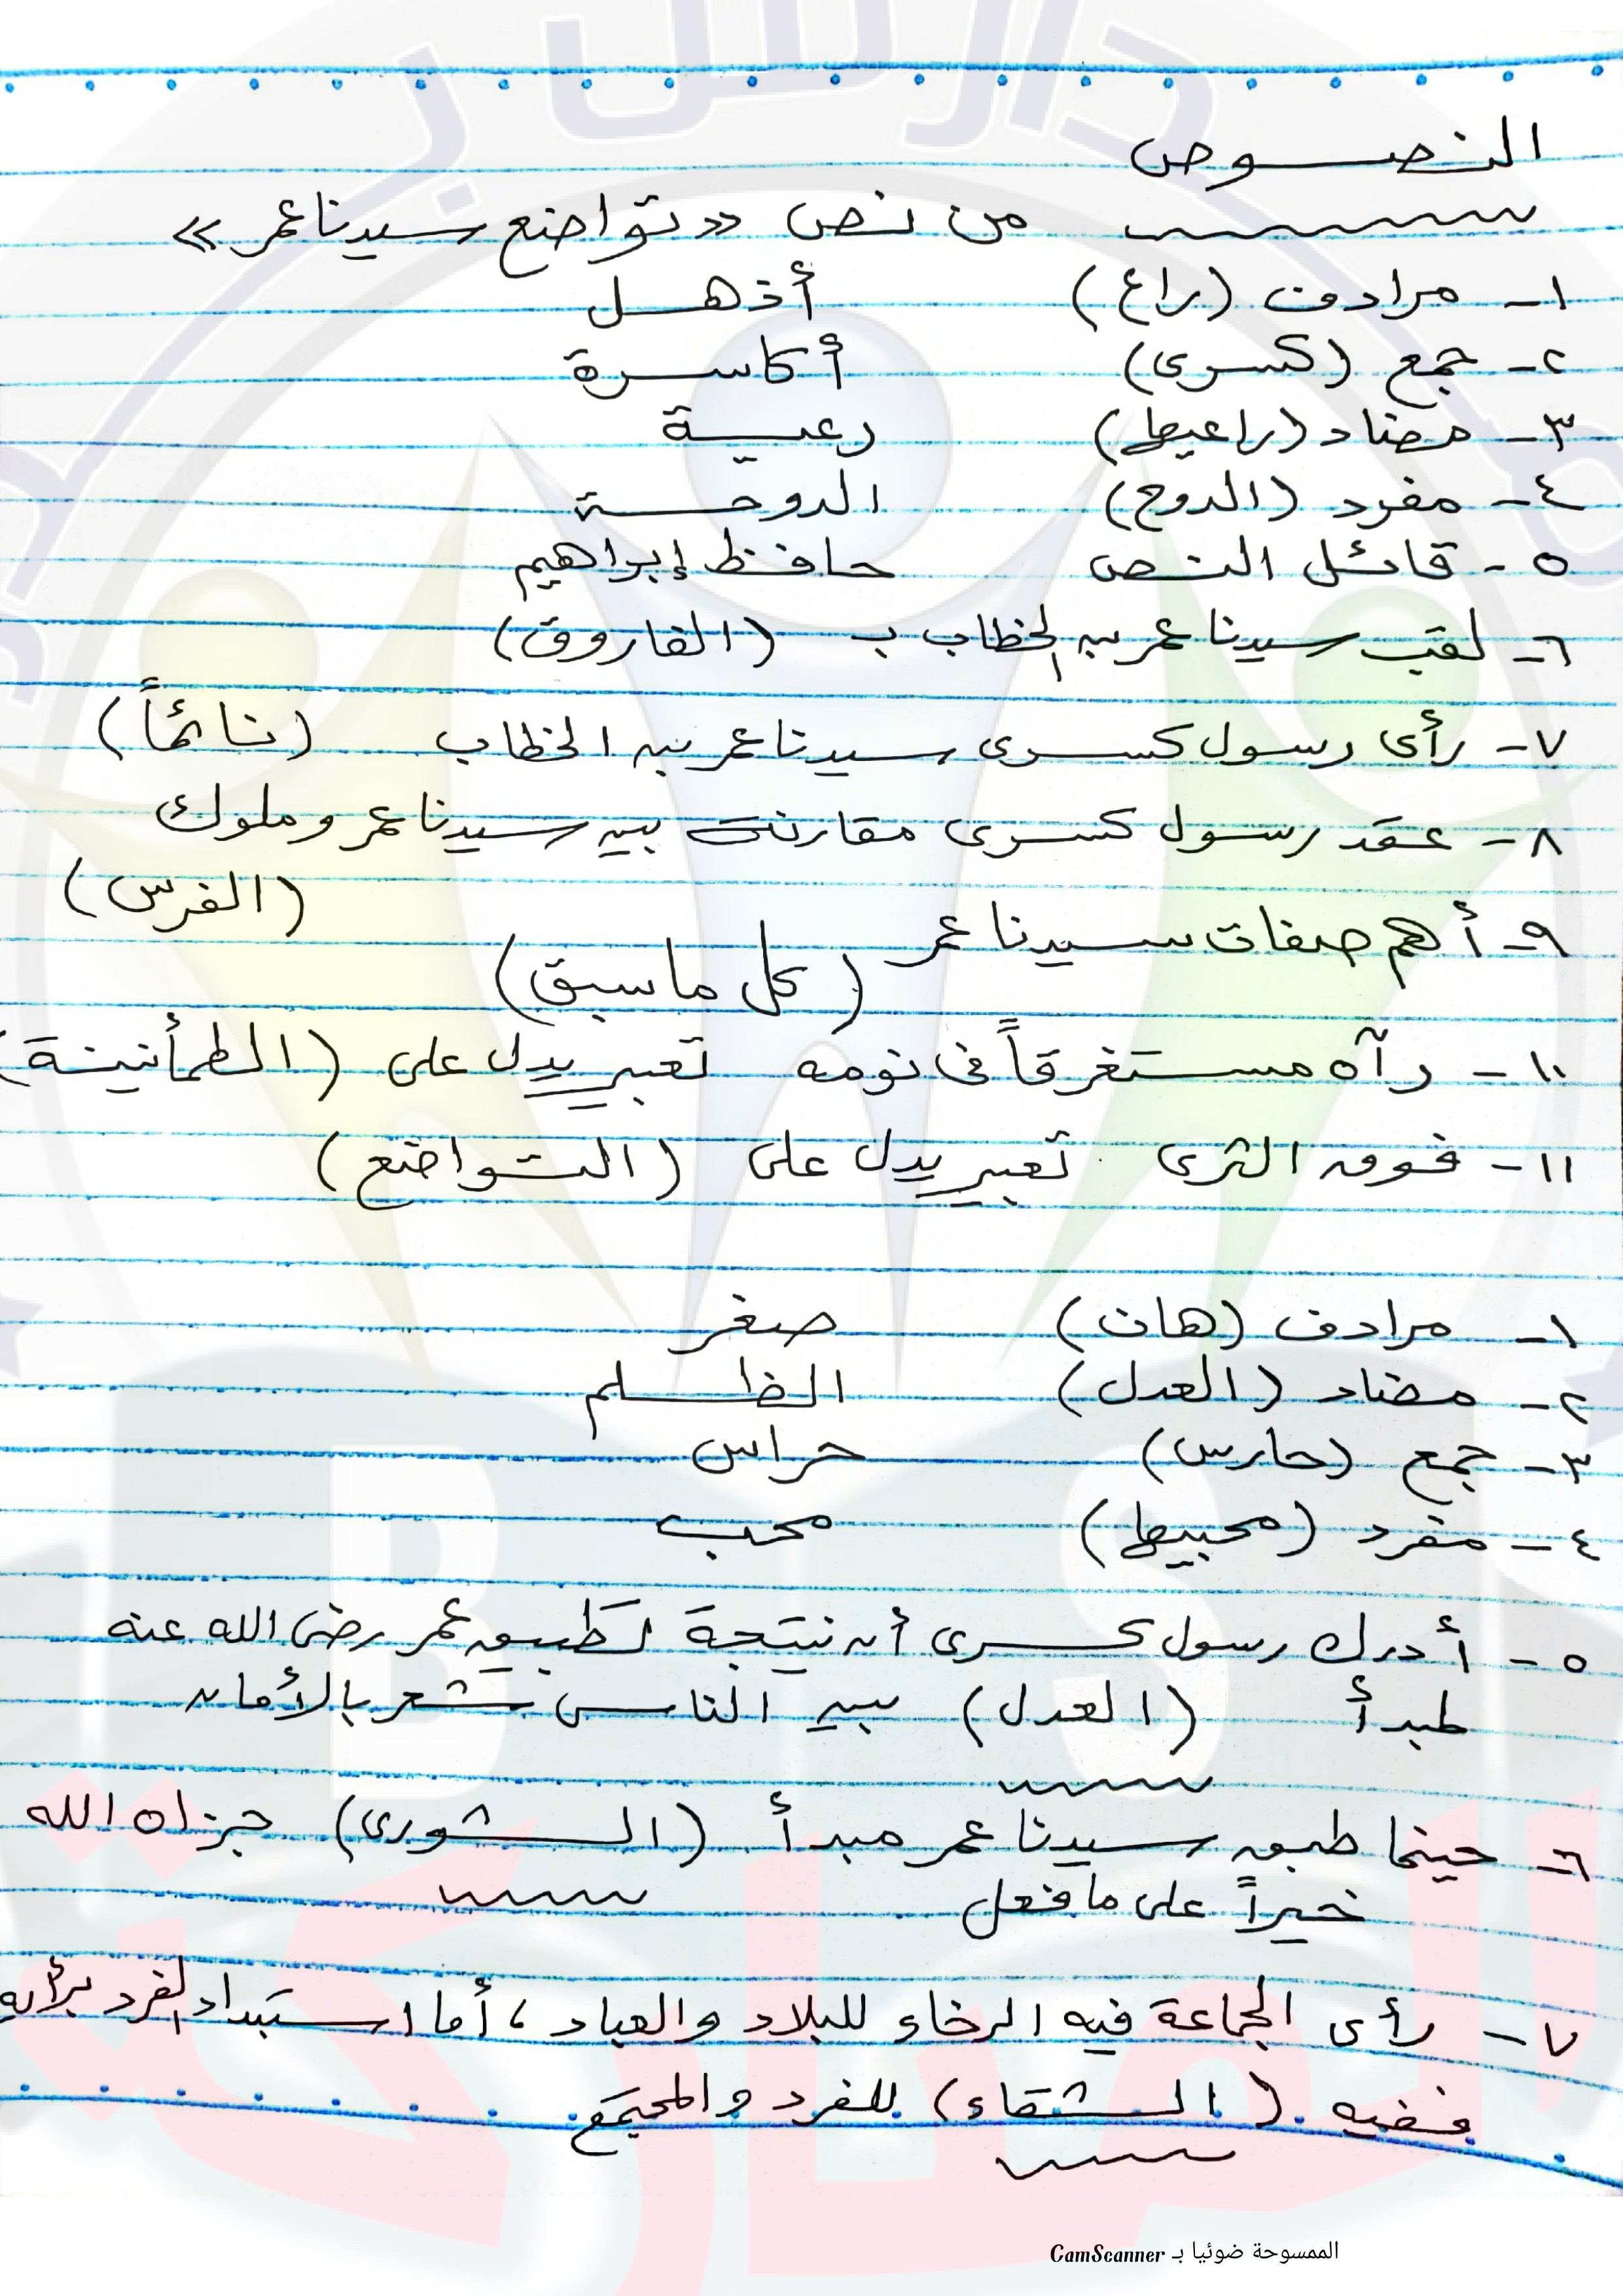 النصوص
من نص «تواضع سيدنا عمر»
١- مرادف (راع) أذهل
٢- جمع (كسرى) أكاسرة
٣- مضاد (راعيها) رعية
٤- مفرد (الدوح) الدوحة
٥- قائل النص حافظ إبراهيم
٦- لقب سيدنا عمر بن الخطاب ب (الفاروق)
٧- رأى رسول كسرى سيدنا عمر بن الخطاب (نائماً)
٨- عقد رسول كسرى مقارنة بين سيدنا عمر وملوك
(الفرس)
٩- أهم صفات سيدنا عمر
(كل ما سبق)
١٠- رآه مستغرقاً فى نومه تعبير يدل على (الطمأنينة)
١١- فوق الثرى تعبير يدل على (التواضع)
١- مرادف (هان) صغر
٢- مضاد (العدل) الظلم
٣- جمع (حارس) حراس
٤- مفرد (محبيها) محب
٥- أدرك رسول كسرى أن نتيجة لتطبيق عمر رضى الله عنه
لمبدأ (العدل) بين الناس شعر بالأمان
٦- حينما طبق سيدنا عمر مبدأ (الشورى) جزاه الله
خيراً على ما فعل
٧- رأى الجماعة فيه الرخاء للبلاد والعباد، أما استبداد الفرد برأيه
ففيه (الشقاء) للفرد والمجتمع.
الممسوحة ضوئيا بـ CamScanner